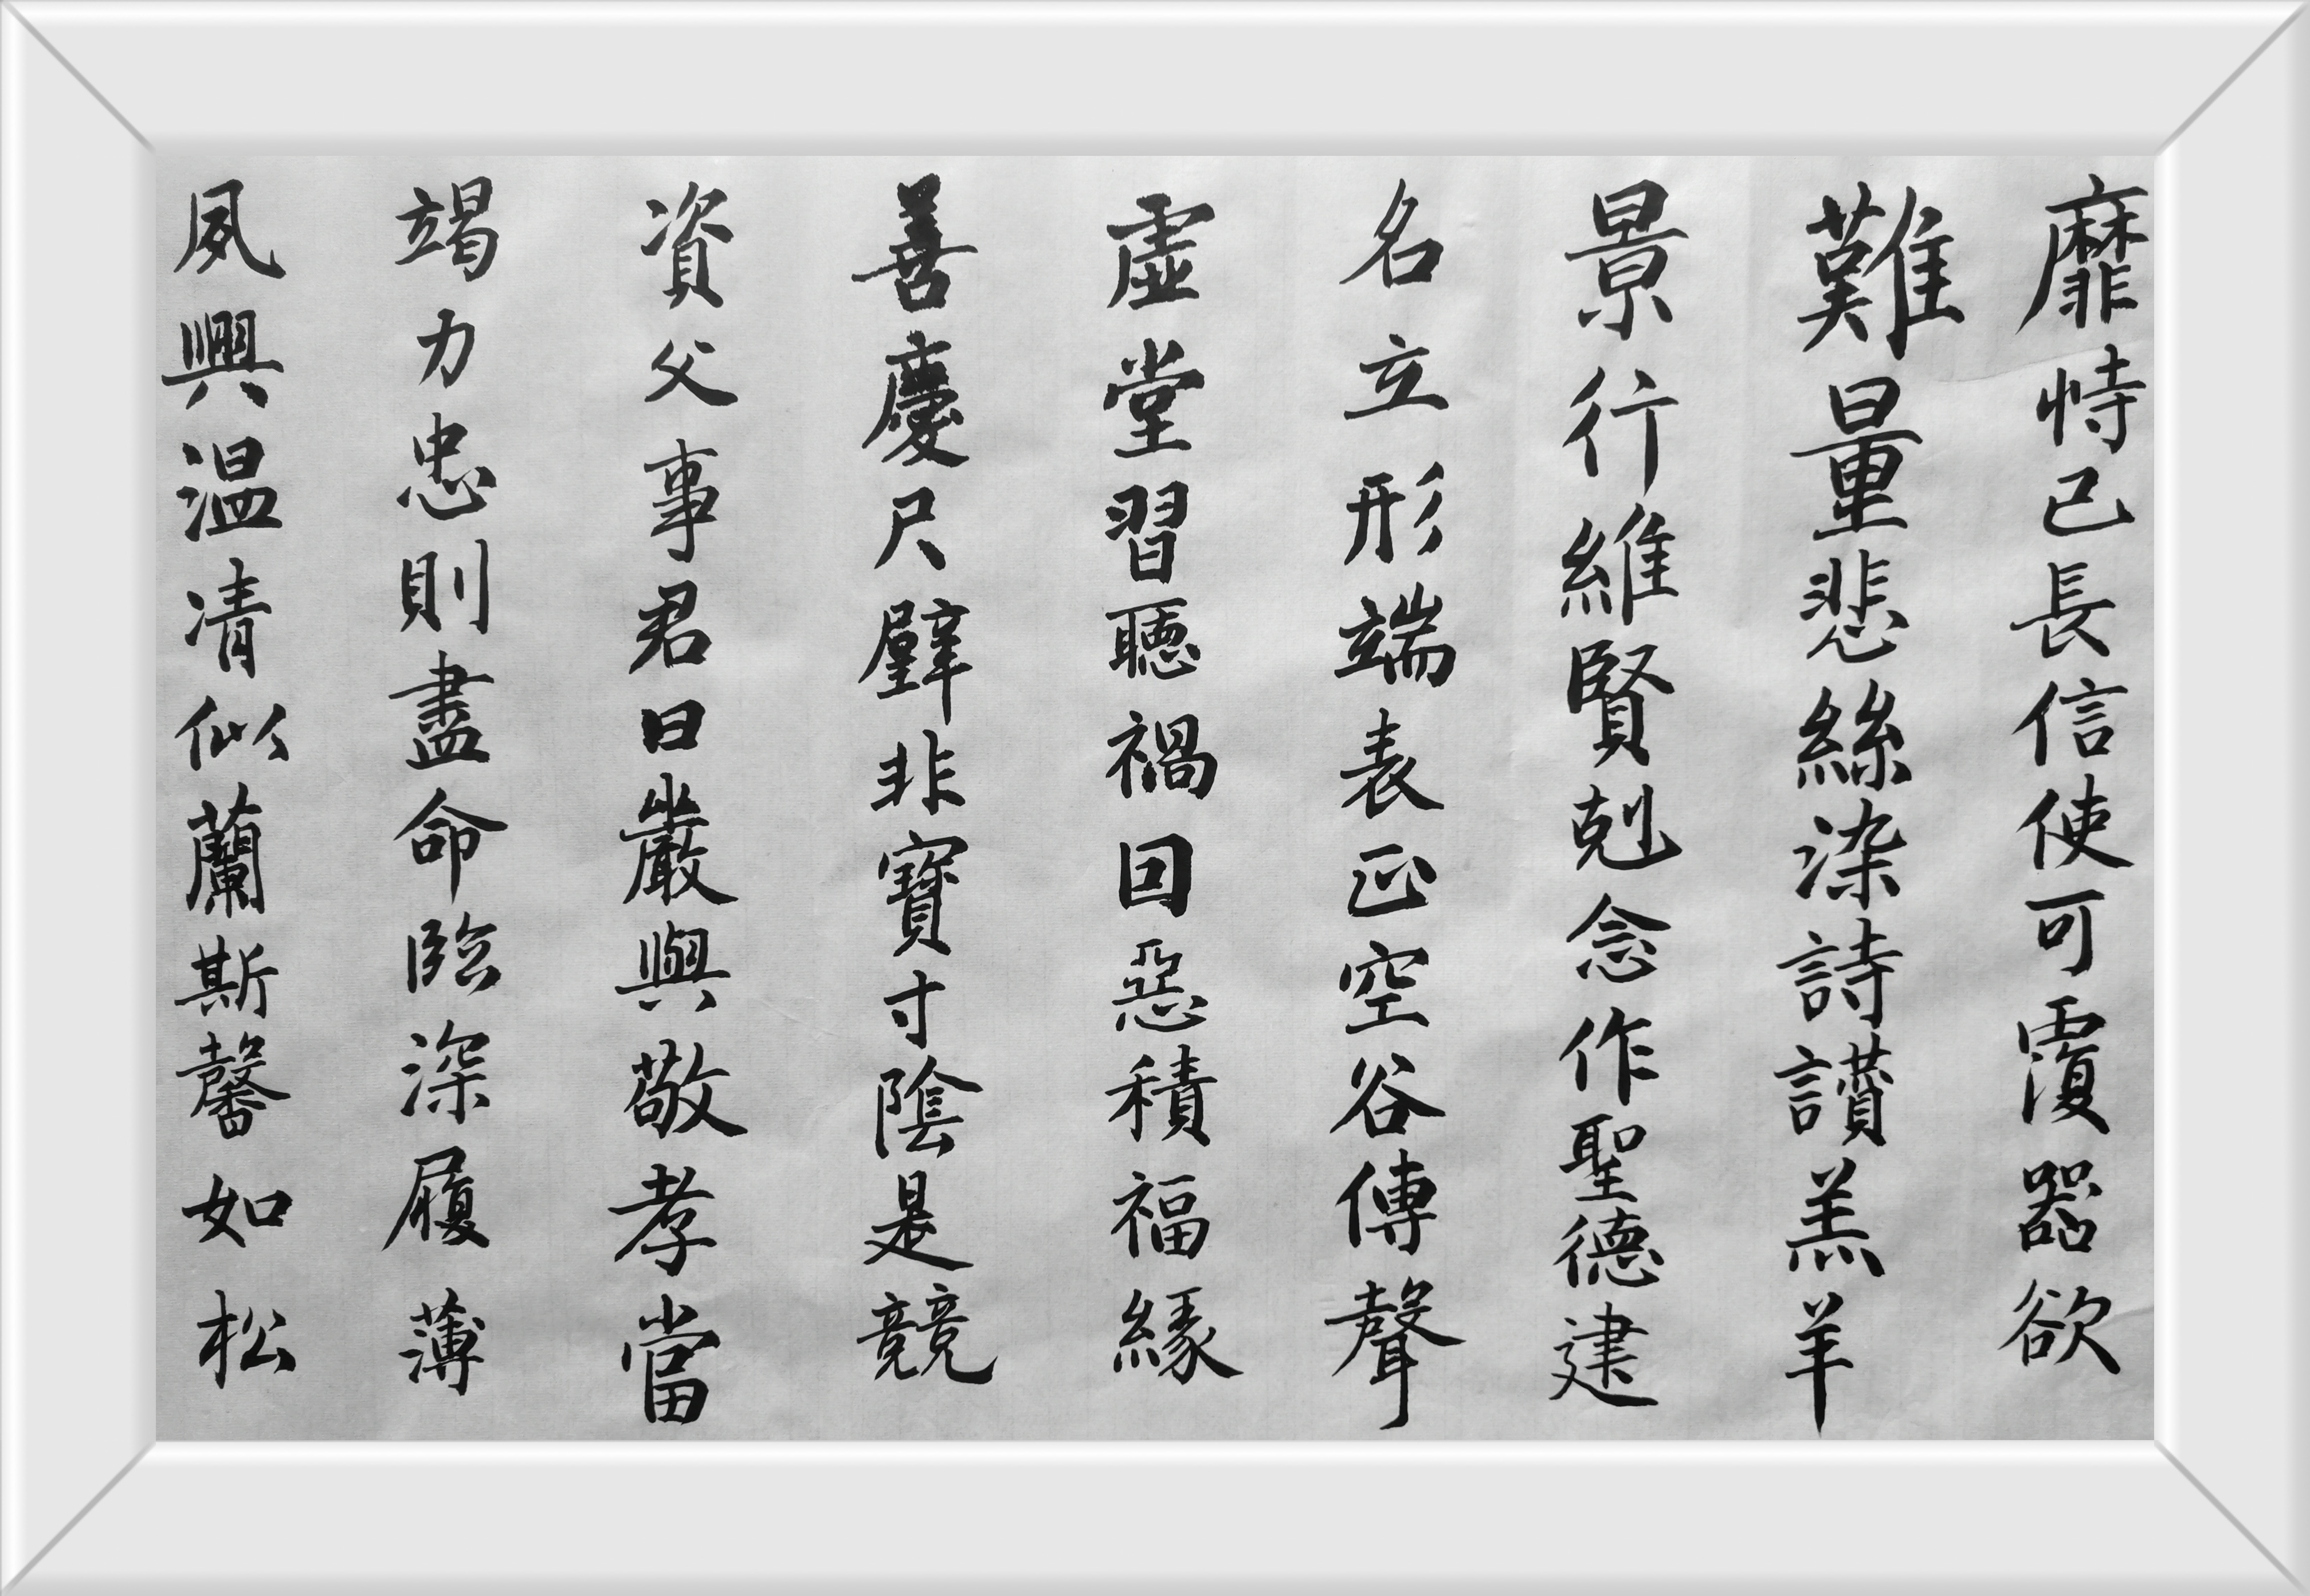 靡恃己長信使可覆器欲
難量悲絲染詩讃羔羊
景行維賢剋念作聖德建
名立形端表正空谷傳聲
虛堂習聽禍因惡積福緣
善慶尺璧非寶寸陰是競
資父事君曰嚴與敬孝當
竭力忠則盡命臨深履薄
夙興温凊似蘭斯馨如松